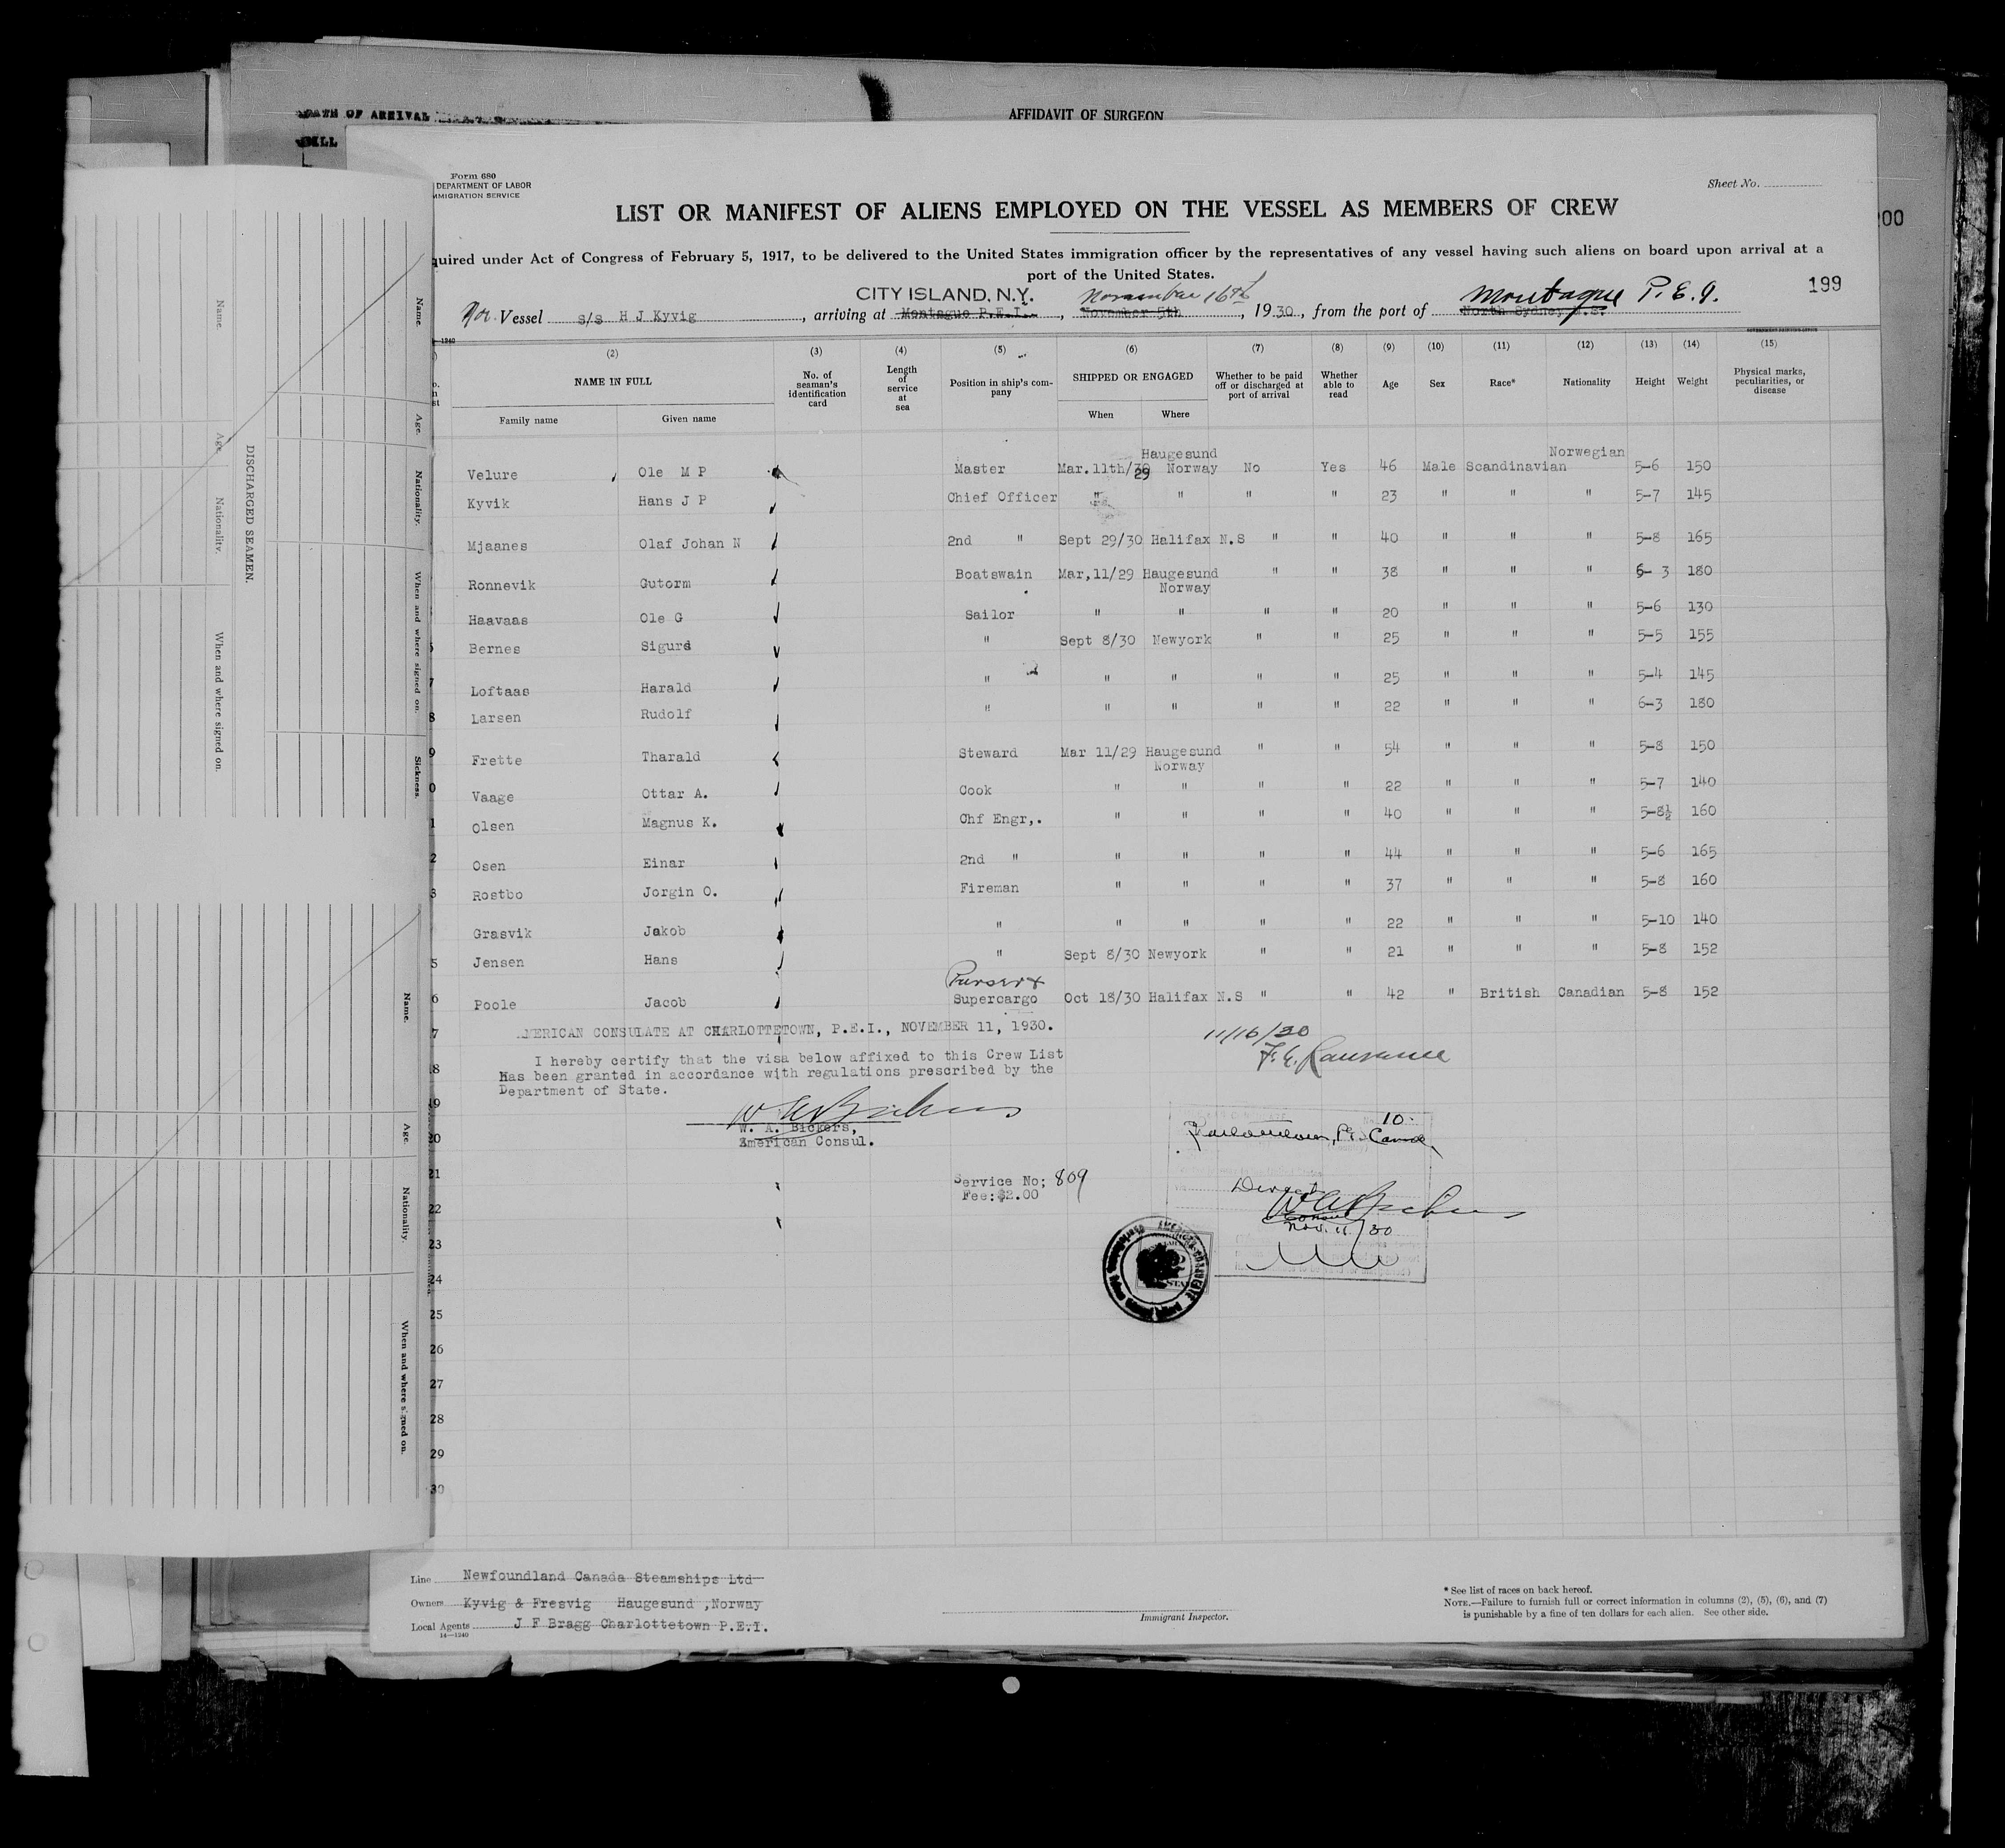 DATE OF ARRIVAL
AFFIDAVIT OF SURGEON
Form 680
DEPARTMENT OF LABOR
IMMIGRATION SERVICE
Sheet No.
LIST OR MANIFEST OF ALIENS EMPLOYED ON THE VESSEL AS MEMBERS OF CREW
200
quired under Act of Congress of February 5, 1917, to be delivered to the United States immigration officer by the representatives of any vessel having such aliens on board upon arrival at a
port of the United States.
199
CITY ISLAND, N.Y. November 16th Montague P.E.I.
Nor. Vessel s/s H J Kyvig, arriving at Montague P.E.I., November 5th, 1930, from the port of North Sydney N.S.
(2) (3) (4) (5) (6) (7) (8) (9) (10) (11) (12) (13) (14) (15)
NAME IN FULL No. of seaman's identification card Length of service at sea Position in ship's company SHIPPED OR ENGAGED Whether to be paid off or discharged at port of arrival Whether able to read Age Sex Race* Nationality Height Weight Physical marks, peculiarities, or disease
Family name Given name When Where
Velure Ole M P Master Mar.11th/30 29 Haugesund Norway No Yes 46 Male Scandinavian Norwegian 5-6 150
Kyvik Hans J P Chief Officer " " " " 23 " " " 5-7 145
Mjaanes Olaf Johan N 2nd " Sept 29/30 Halifax N.S " " 40 " " " 5-8 165
Ronnevik Gutorm Boatswain Mar,11/29 Haugesund Norway " " 38 " " " 6- 3 180
Haavaas Ole G Sailor " " " " 20 " " " 5-6 130
Bernes Sigurd " Sept 8/30 Newyork " " 25 " " " 5-5 155
7 Loftaas Harald " " " " " 25 " " " 5-4 145
8 Larsen Rudolf " " " " " 22 " " " 6-3 180
9 Frette Tharald Steward Mar 11/29 Haugesund Norway " " 54 " " " 5-8 150
0 Vaage Ottar A. Cook " " " " 22 " " " 5-7 140
1 Olsen Magnus K. Chf Engr,. " " " " 40 " " " 5-8½ 160
2 Osen Einar 2nd " " " " " 44 " " " 5-6 165
3 Rostbo Jorgin O. Fireman " " " " 37 " " " 5-8 160
Grasvik Jakob " " " " " 22 " " " 5-10 140
5 Jensen Hans " Sept 8/30 Newyork " " 21 " " " 5-8 152
6 Poole Jacob Purser & Supercargo Oct 18/30 Halifax N.S " " 42 " British Canadian 5-8 152
7 AMERICAN CONSULATE AT CHARLOTTETOWN, P.E.I., NOVEMBER 11, 1930.
11/16/30
I hereby certify that the visa below affixed to this Crew List
8 Has been granted in accordance with regulations prescribed by the
Department of State.
19
W. A. Bickers,
20 American Consul.
10.
21 Service No; 809
Fee:$2.00
Direct
22
Consul
Nov. 11/30
23
24
25
26
27
28
29
30
Line Newfoundland Canada Steamships Ltd
Owners Kyvig & Fresvig Haugesund ,Norway
Local Agents J F Bragg Charlottetown P.E.I.
14—1240
Immigrant Inspector.
* See list of races on back hereof.
NOTE.—Failure to furnish full or correct information in columns (2), (5), (6), and (7)
is punishable by a fine of ten dollars for each alien. See other side.
DISCHARGED SEAMEN.
Name.
Age.
Nationality.
When and where signed on.
Name.
Age.
Nationality.
When and where signed on.
Sickness.
Name.
Age.
Nationality.
When and where signed on.